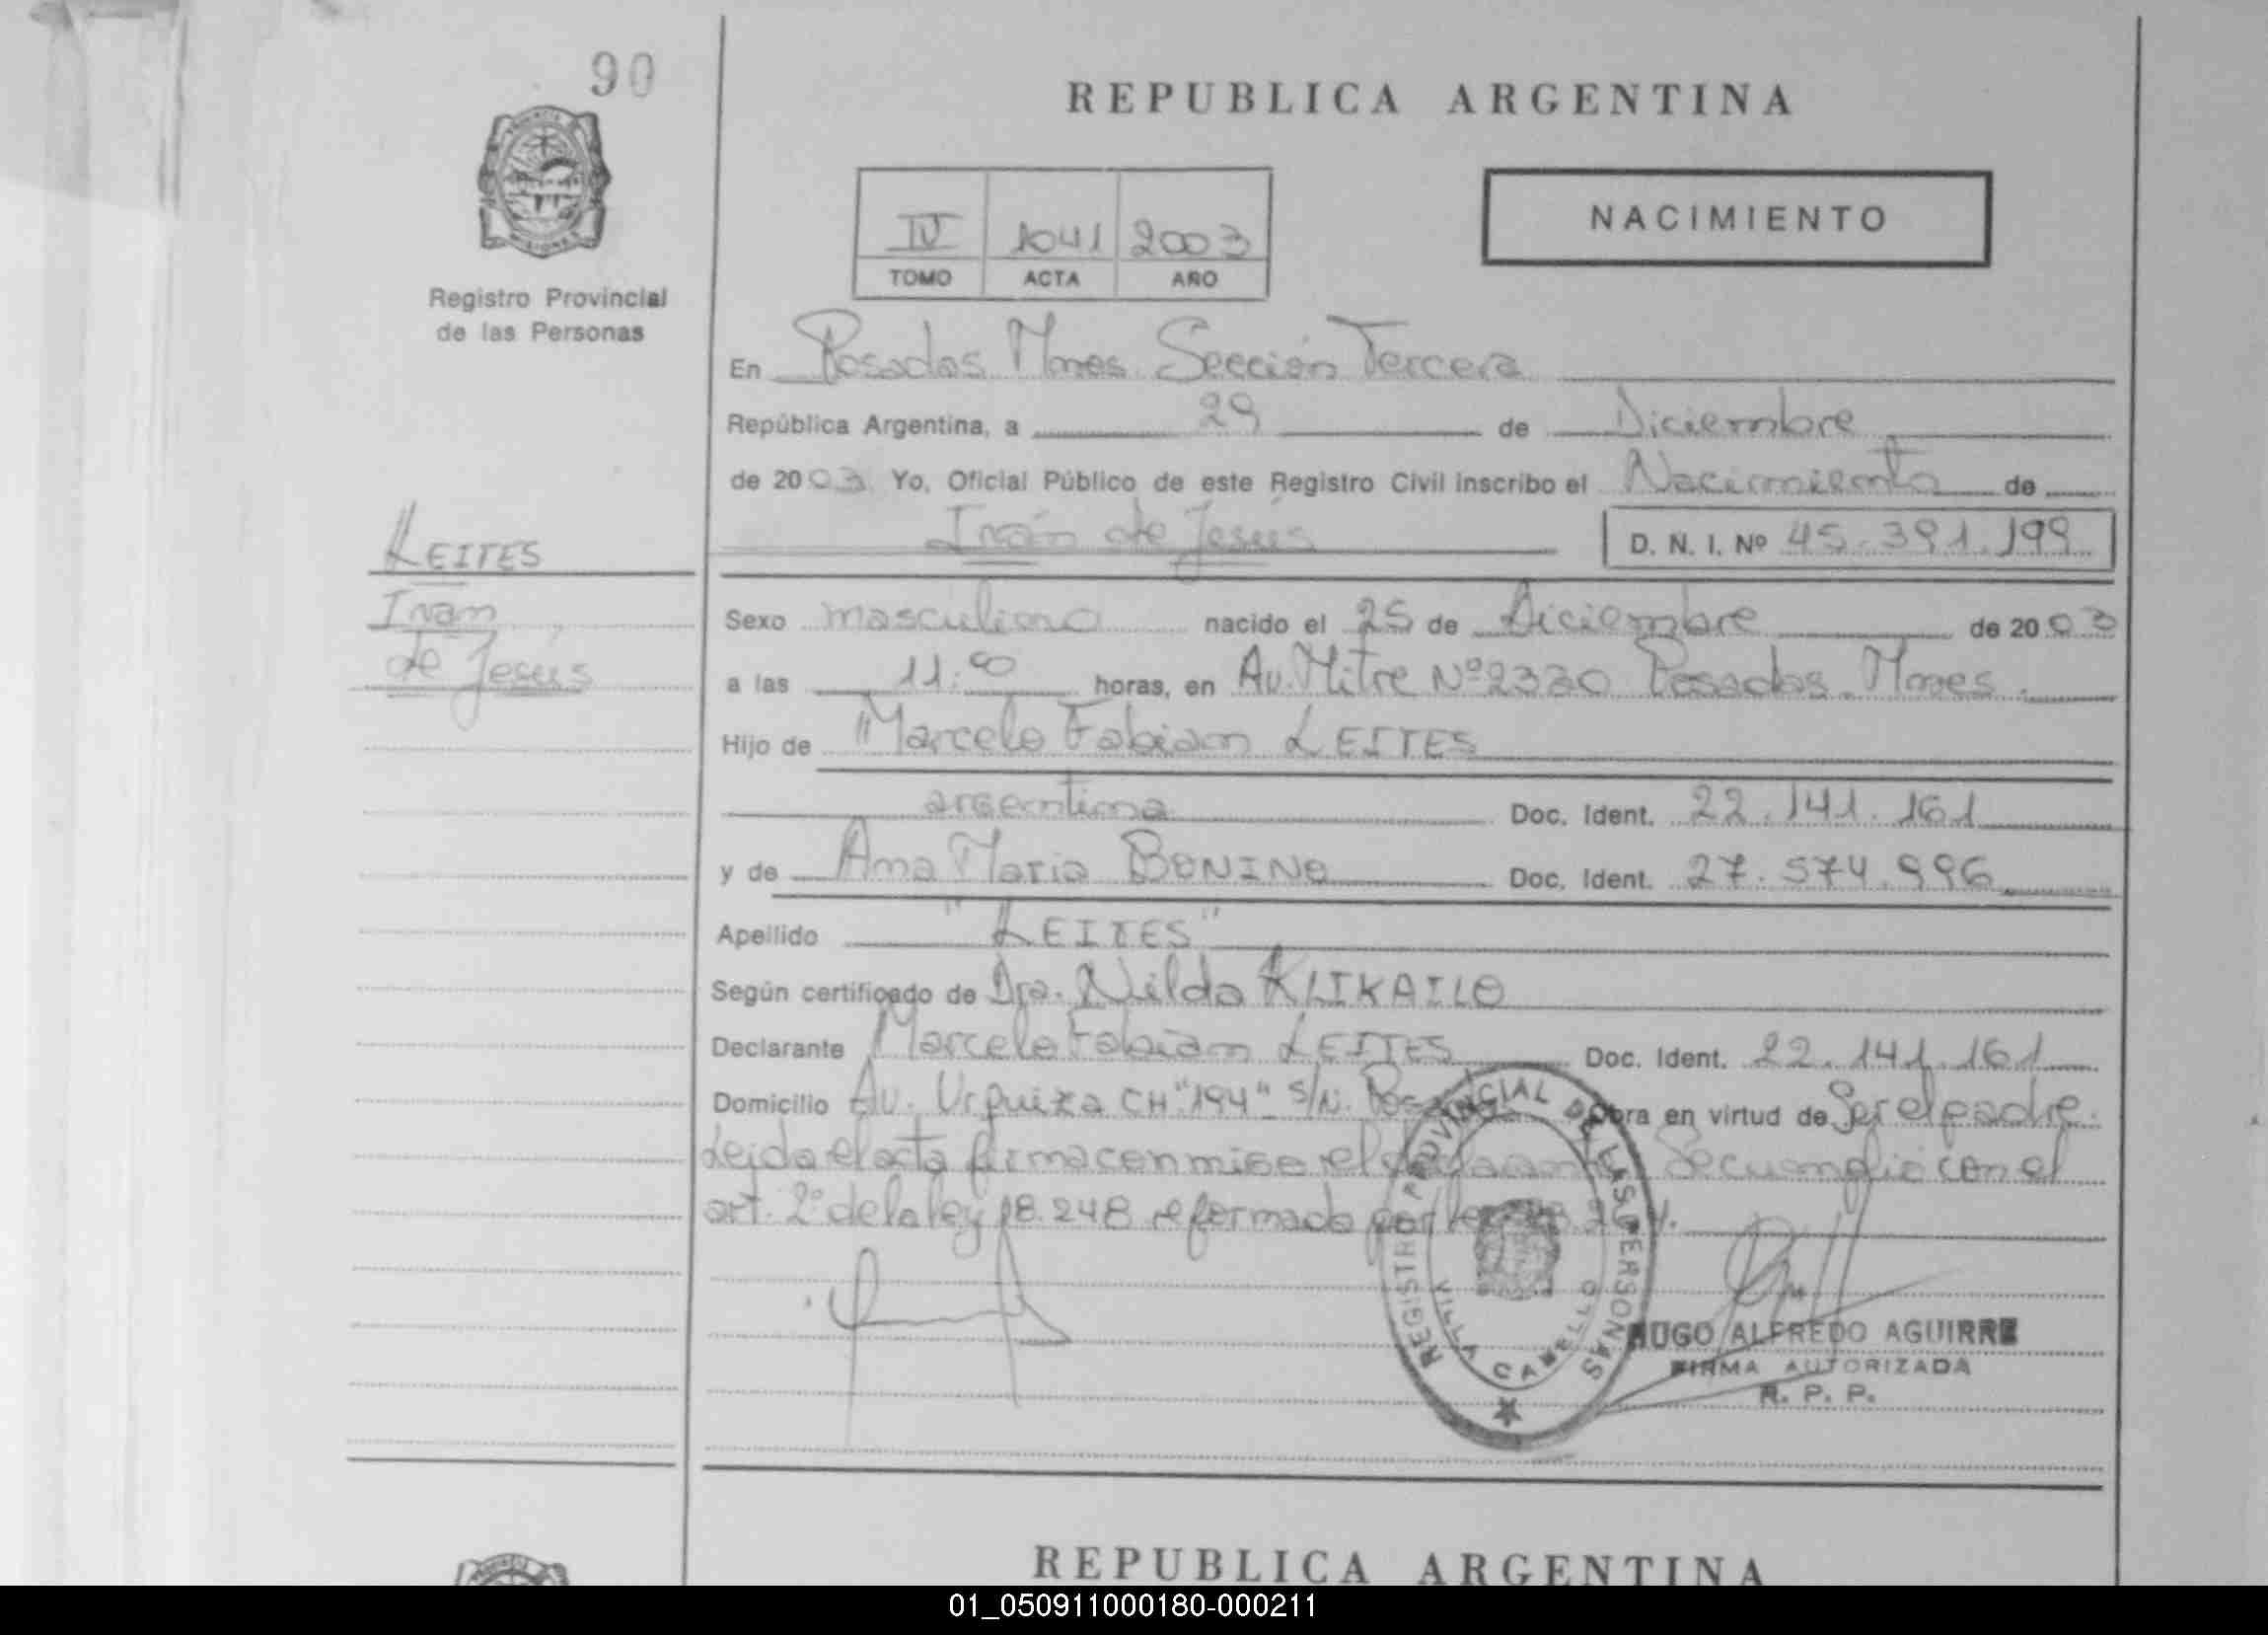 90
REPUBLICA ARGENTINA
IV 1041 2003
TOMO ACTA AÑO
NACIMIENTO
Registro Provincial
de las Personas
En Posadas Mnes Sección Tercera
República Argentina, a 29 de Diciembre
de 2003 Yo, Oficial Público de este Registro Civil inscribo el Nacimiento de
Iván de Jesús D. N. I. Nº 45.391.199
LEITES
Iván
de Jesús
Sexo masculino nacido el 25 de Diciembre de 2003
a las 11:00 horas, en Av. Mitre Nº 2330 Posadas. Mnes.
Hijo de Marcelo Fabian LEITES
argentina Doc. Ident. 22.141.161
y de Ana Maria BONINO Doc. Ident. 27.574.996
Apellido "LEITES"
Según certificado de Dra. Nilda KLIKAILO
Declarante Marcelo Fabian LEITES Doc. Ident. 22.141.161
Domicilio Av. Urquiza CH "194" S/N. Obra en virtud de Ser el padre.
Leida el acta firma conmigo el declarante Se cumplió con el
art. 2º de la ley 18.248 reformado por ley
REGISTRO PROVINCIAL DE LAS PERSONAS
VILLA CABELLO
HUGO ALFREDO AGUIRRE
FIRMA AUTORIZADA
R. P. P.
REPUBLICA ARGENTINA
01_050911000180-000211